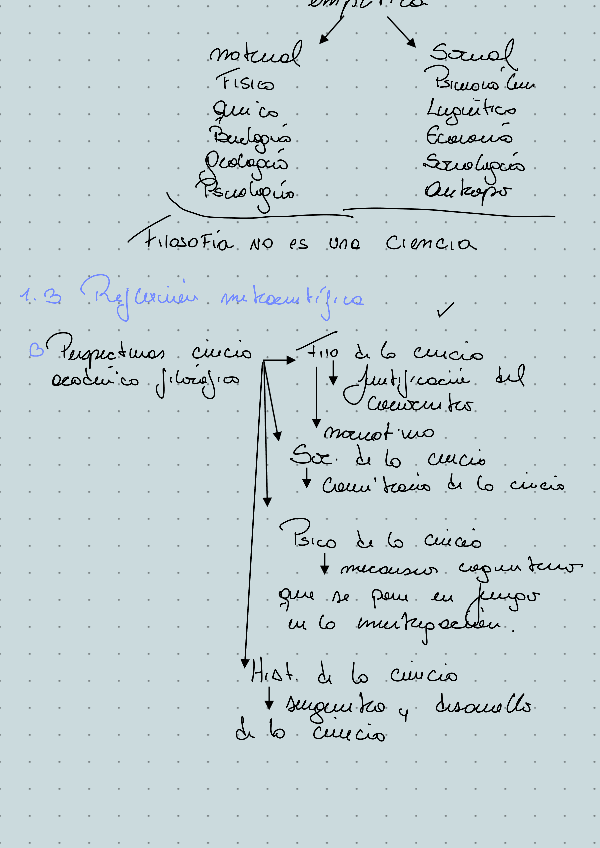 empírica
natural
Social
Físico
Química
Biología
Geología
Psicología
Lingüística
Economía
Sociología
Antropo
Filosofía no es una ciencia
1.3 Reflexión metacientífica
B Perspectivas ciencia
académico filosófico
Filo de la ciencia
justificación del
conocimiento
normativo
Soc. de la ciencia
comunitaria de la ciencia
Psico de la ciencia
mecanismos cognitivos
que se pone en juego
en la investigación.
Hist. de la ciencia
surgimiento y desarrollo
de la ciencia